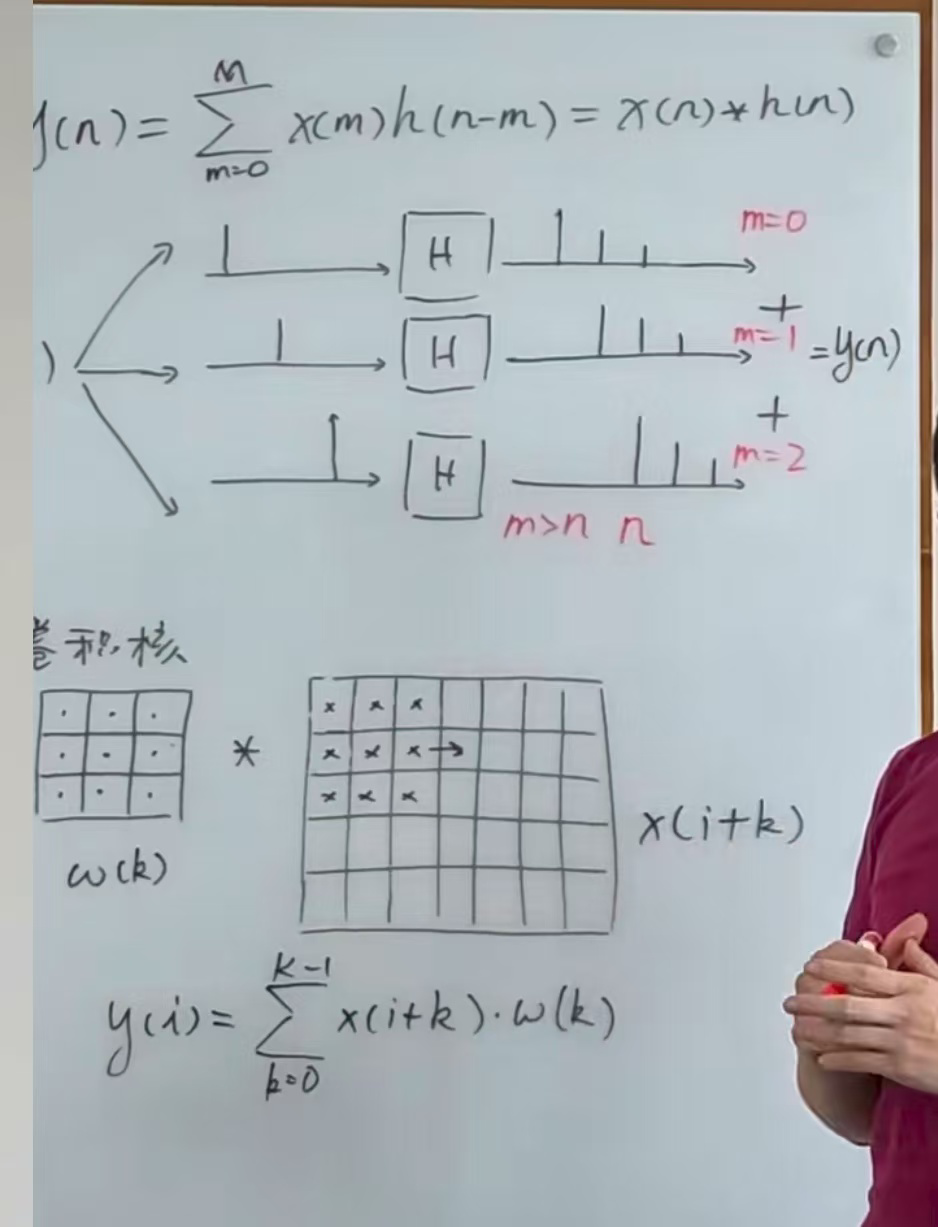 y(n) = \sum_{m=0}^{M} x(m) h(n-m) = x(n) * h(n)
H m=0
+
) H m=1 = y(n)
+
H m=2
m>n n
卷积核
* x(i+k)
w(k)
y(i) = \sum_{k=0}^{K-1} x(i+k) · w(k)